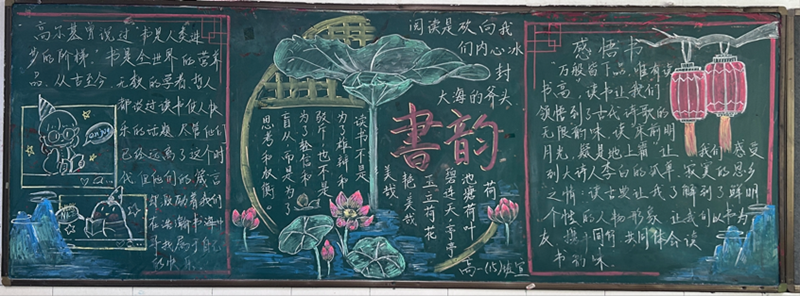 高尔基曾说过"书是人类进
步的阶梯."书是全世界的营养
品.从古至今,无数的学者.哲人
都说过读书使人快
乐的话题.尽管他们
已经远离了这个时
代.但他们的箴言
却激励着我们
在书海中
仍快乐.
阅读是砍向我
们内心冰
封
大海的斧头
读书不是
为了雄辩和
驳斥.也不是
为了轻信和
盲从.而是为了
思考和权衡.
書韵
美哉
艳美哉
玉立荷花
碧连天亭亭
池塘荷叶
荷
高一(15)班宣
感悟书
"万般皆下品,惟有读
书高",读书让我们
领悟到了古代诗歌的
无限韵味.读"床前明
月光,疑是地上霜"让我们感受
到大诗人李白的孤单.寂寞的思乡
之情.读古典让我了解到了鲜明
个性的人物形象.让我们以书为
友,携手同行.共同体会读
书韵味.